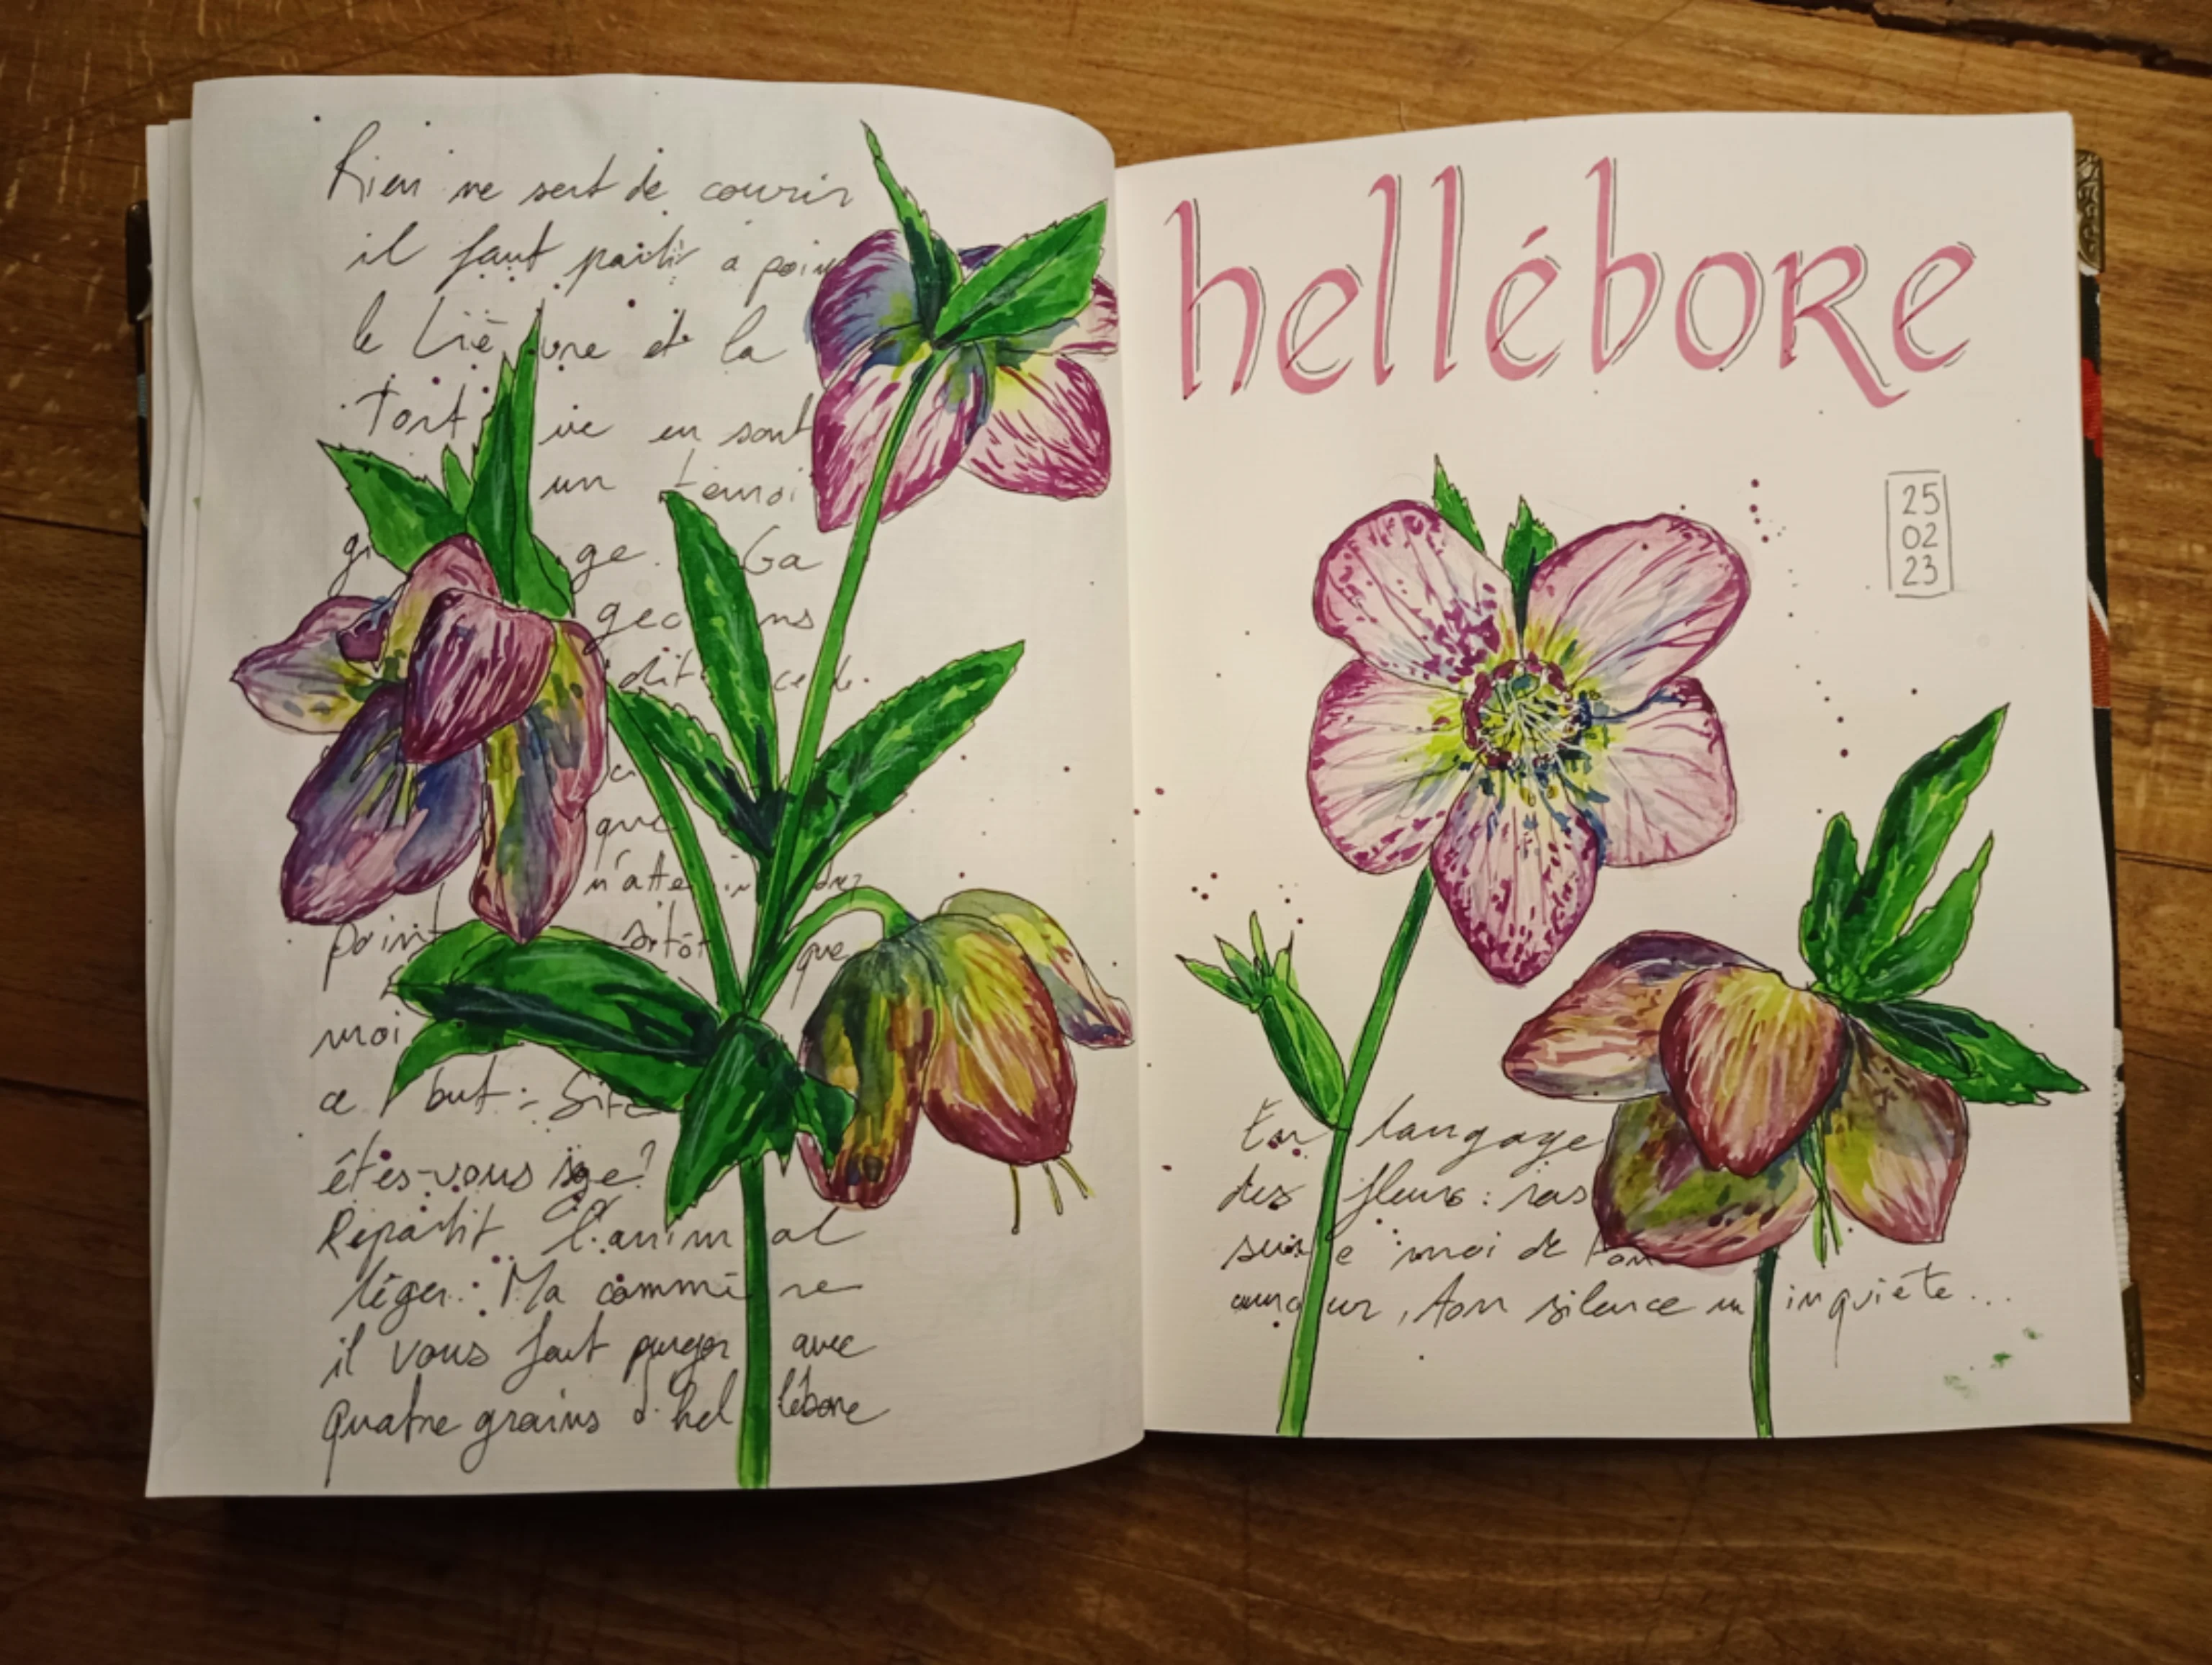 Rien ne sert de courir
il faut partir à poin
le Liè vre et la
Tort ue en sont
un témoi
g ge. Ga
geo ns
dit ce le.
que
n'atte in drez
point sitôt que
moi
ce but : Sitô
êtes-vous sage?
Repartit l'anim al
léger : Ma commè re
il vous faut purger avec
quatre grains d'hel lébore
hellébore
25
02
23
En langage
des fleurs : ras
sure moi de ton
amour, ton silence m inquiète...